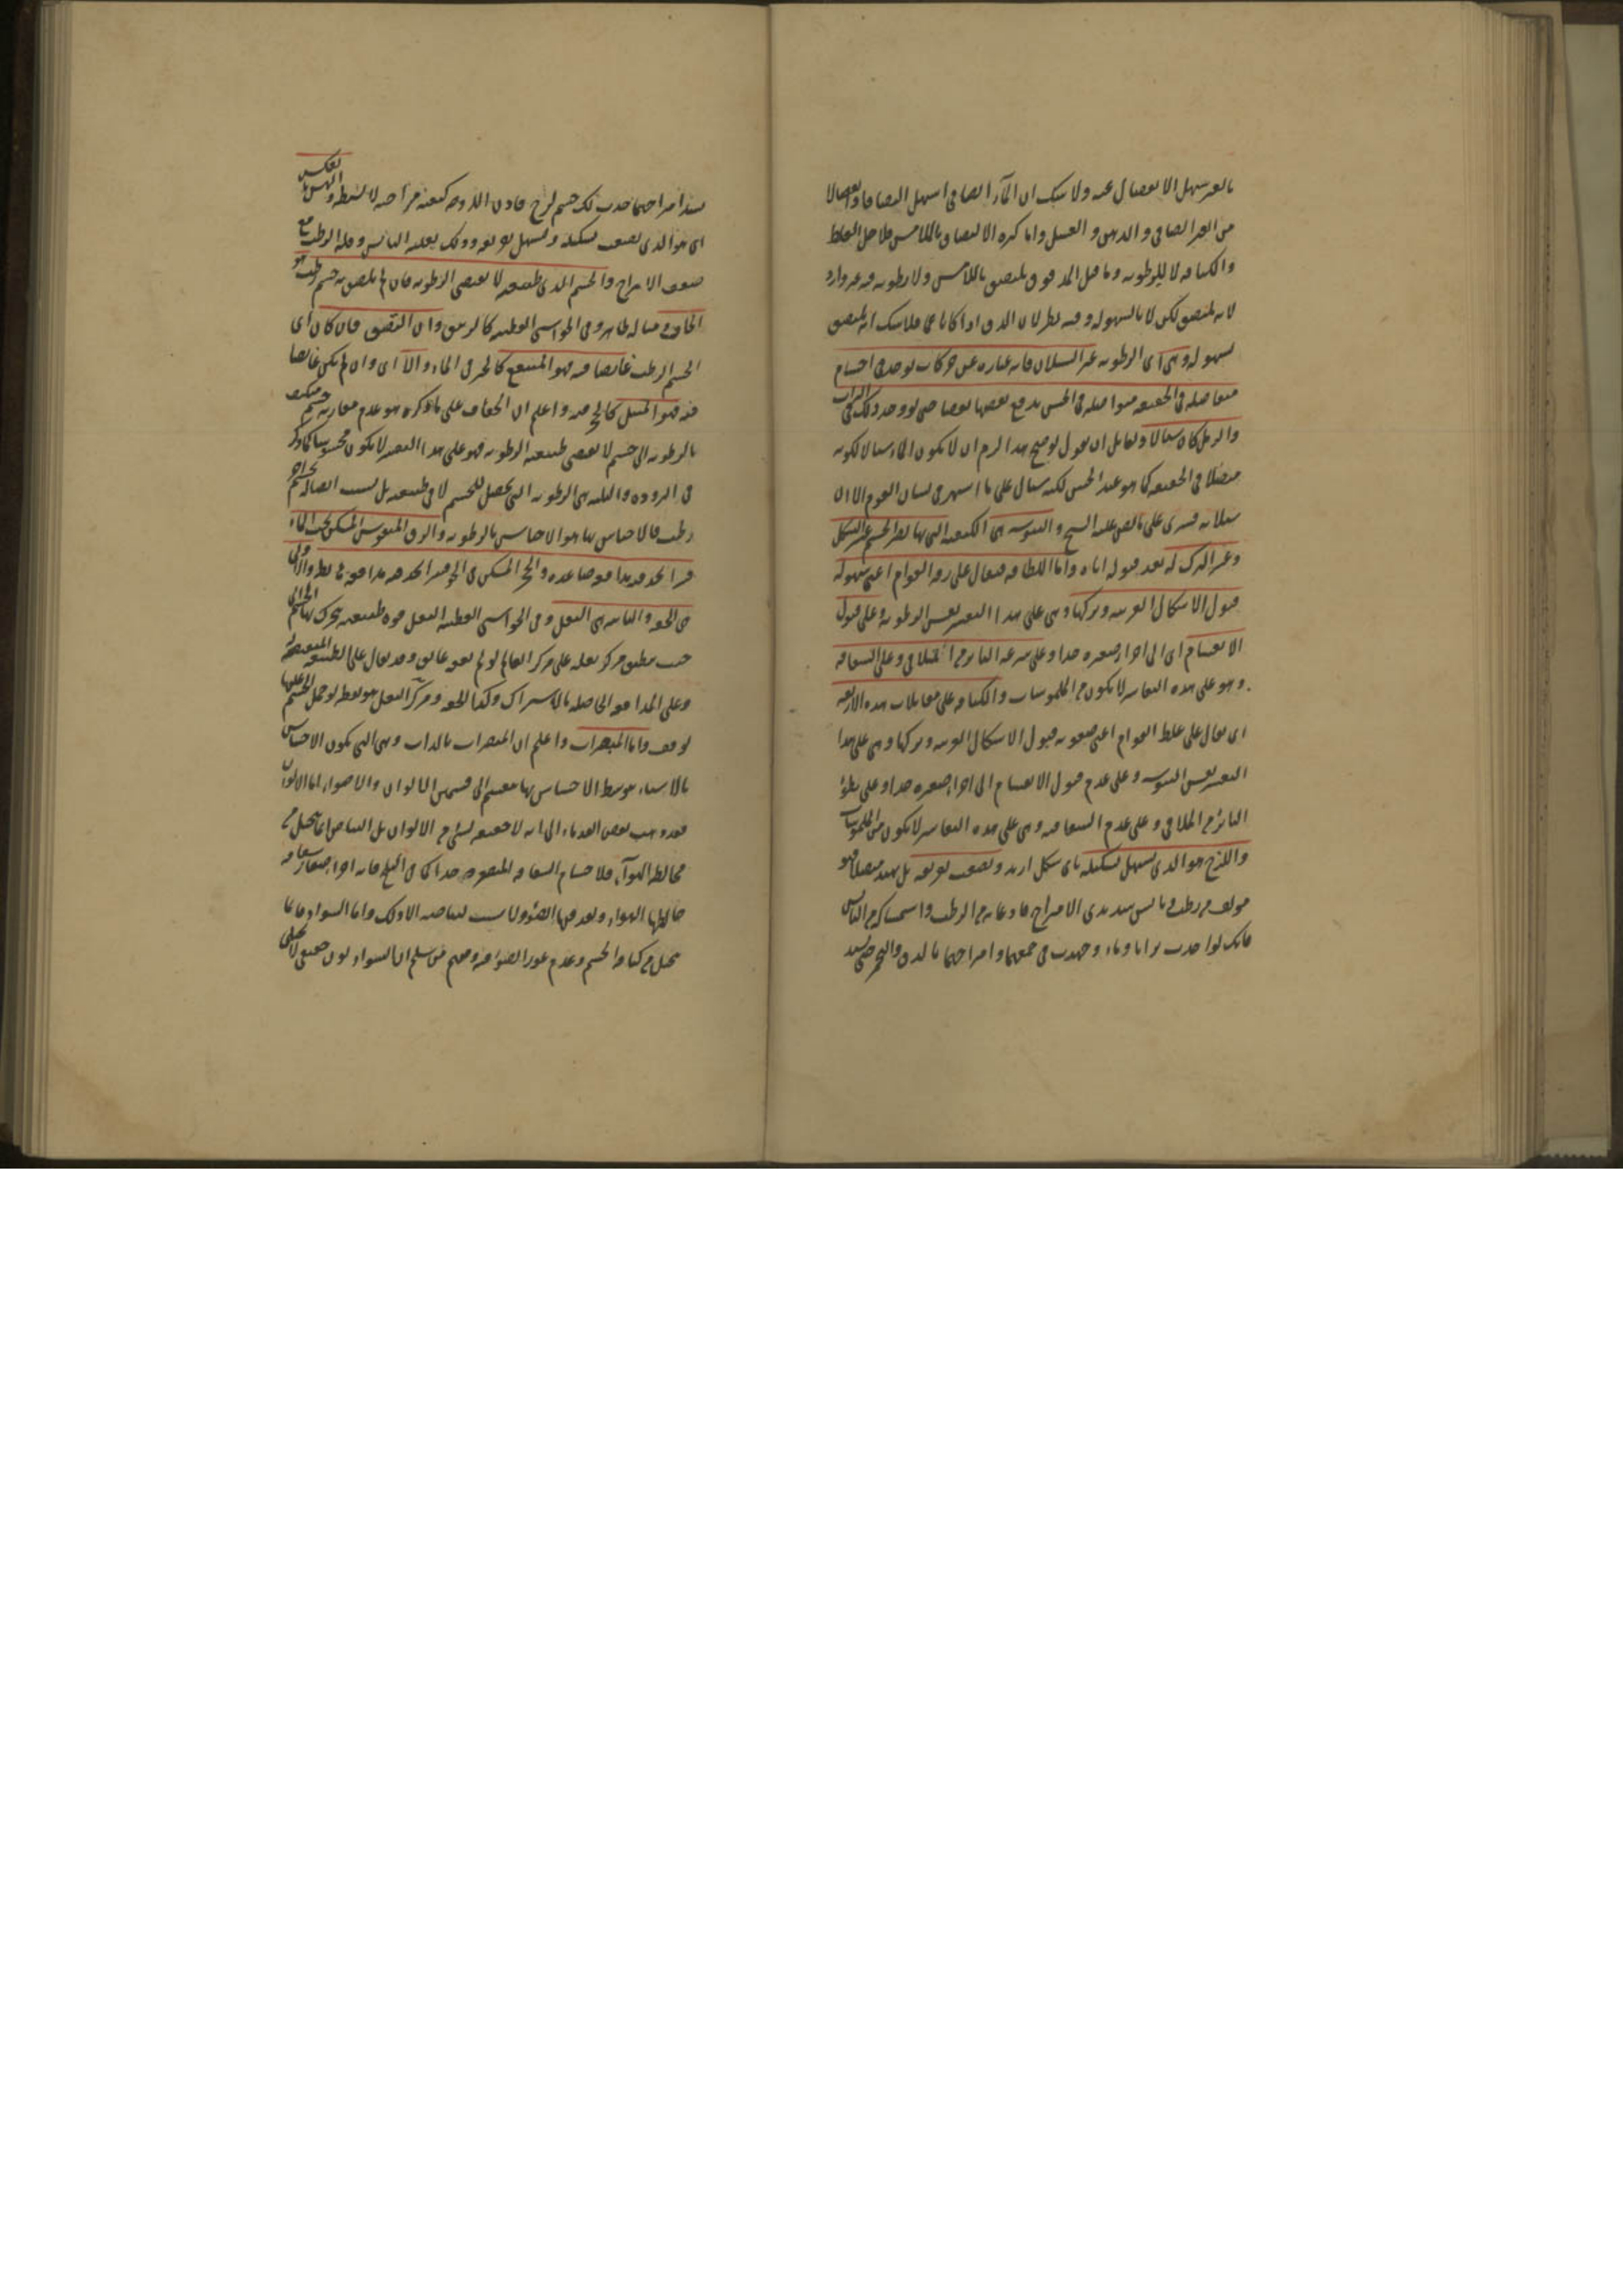 بالغير سهل الانفصال عنه ولا شك ان الماء الصافى اسهل التصاقا وانفصالا
من الغير الصافى والدهن و العسل واما كثرة الالتصاق باللامس فلاجل الغلظ
والكثافة لا للرطوبة وما قيل المدقوق يلتصق باللامس ولا رطوبة فيه غير وارد
لانه يلتصق لكن لا بالسهولة وفيه نظر لان الدق اذا كان فلا شك انه يلتصق
بسهولة وهى اى الرطوبة غير السيلان فانه عبارة عن حركات توجد فى اجسام
متفاصلة فى الحقيقة متواصلة فى الحس يدفع بعضها بعضا حتى لو وجد ذلك فى التراب
والرمل كان سيالا ولقائل ان يقول لو صح هذا لزم ان لا يكون الماء سيالا لكونه
متصلا فى الحقيقة كما هو عند الحس لكنه سيال على ما اشتهر فى لسان القوم الا ان
سيلانه قسرى على ما نص عليه الشيخ و اليبوسة هى الكيفية التى بها يصير الجسم عسر التشكل
وعسر الترك له بعد قبوله اياه واما اللطافة فيقال على رقة القوام اعنى سهولة
قبول الاشكال الغريبة وتركها وهى على هذا التفسير نفس الرطوبة وعلى قبول
الانقسام اى الى اجزاء صغيرة جدا وعلى سرعة التاثر من الملاقى وعلى الشفافة
وهو على هذه التفاسير لا يكون من الملموسات والكثافة على مقابلات هذه الاربعة
اى يقال على غلظ القوام اعنى صعوبة قبول الاشكال الغريبة وتركها وهى على هذا
التفسير نفس اليبوسة وعلى عدم قبول الانقسام الى اجزاء صغيرة جدا وعلى بطؤ
التاثر من الملاقى وعلى عدم الشفافية وهى على هذه التفاسير لا يكون من الملموسات
واللزج هو الذى يسهل تشكيله باى شكل اريد ويصعب تفريقه بل يمتد متصلا فهو
مولف من رطب ويابس شديدى الامتزاج فاذعانه من الرطب واستمساكه من اليابس
فانك لو اخذت ترابا وماء وجهدت فى جمعهما وامتزاجهما بالدق والتخمير حتى يشتد
امتزاجهما حدث لك جسم لزج فاذن اللزوجة كيفية مزاجية لا بسيطة والهش بالعكس
اى هو الذى يصعب تشكيله ويسهل تفريقه وذلك لغلبة اليابس وقلة الرطب مع
ضعف الامتزاج والجسم الذى طبيعته لا تقتضى الرطوبة فان لم يلتصق به جسم رطب هو
الجاف ومثاله ظاهر وفى الحواشى القطبية كالزيبق وان التصق فان كان اى
الجسم الرطب غائصا فيه فهو المنتقع كالخبز فى الماء والا اى وان لم يكن غائصا
فيه فهو المبتل كالحجر فيه واعلم ان الجفاف على ما ذكره هو عدم مقارنة جسم متكيف
بالرطوبة الى جسم لا تقتضى طبيعته الرطوبة فهو على هذا التفسير لا يكون محسوسا كما ذكر
فى البرودة والبلة هى الرطوبة التى تحصل للجسم لا فى طبيعته بل بسبب اتصاله بجسم اخر
رطب فالاحساس بها هو الاحساس بالرطوبة والزق المنفوخ المسكن تحت الماء
قسرا تجد فيه مدافعة صاعدة والحجر المسكن فى الجو قسرا تجد فيه مدافعة هابطة والاولى
هى الخفة والثانية هى الثقل وفى الحواشى القطبية الثقل قوة طبيعية يتحرك بها الجسم الى
حيث ينطبق مركز ثقله على مركز العالم لو لم يعقه عائق وقد يقال على الطبيعة المقتضية له
وعلى المدافعة الحاصلة بالاشتراك وكذا الخفة ومركز الثقل هو نقطة لو حمل الجسم عليها
لوقف واما المبصرات واعلم ان المبصرات بالذات وهى التى تكون الاحساس
بالاشياء بتوسط الاحساس بها منقسم الى قسمين الالوان والاضواء اما الالوان
فقد ذهب بعض القدماء الى انه لا حقيقة لشئ من الالوان بل البياض انما يتخيل من
مخالطة الهواء للاجسام الشفافة المتصغرة جدا كما فى الثلج فانه اجزاء صغار شفافة
خالطها الهواء ونفذ فيها الضوء ولا سبب لبياضه الا ذلك واما السواد فانما
يتخيل من كثافة الجسم وعدم غور الضوء فيه ومنهم من سلم ان السواد لون حقيقى لا تخيلى